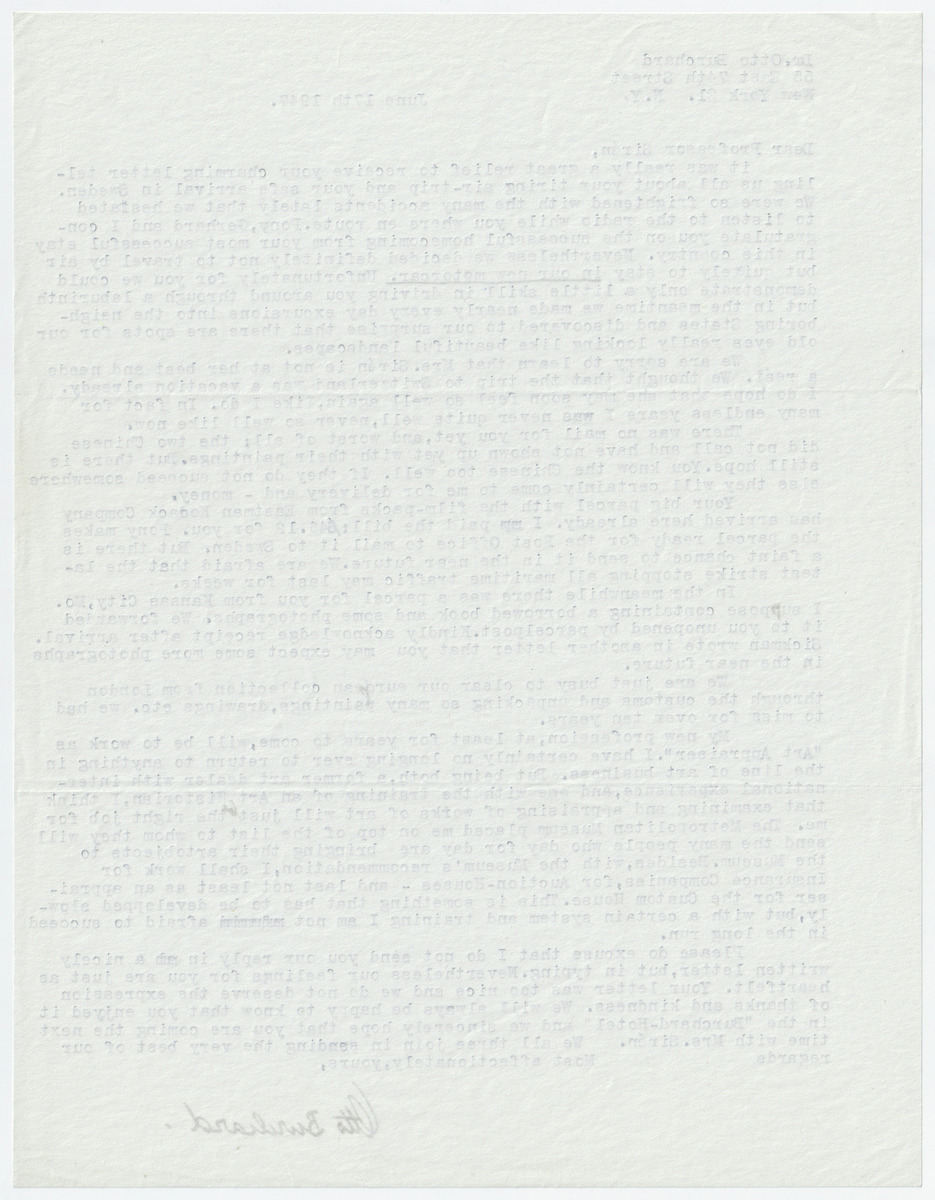 Dr.Otto Burchard
55 East 74th Street
New York 21. N.Y.
June 17th 1947.
Dear Professor Sirén,
it was really a great relief to receive your charming letter tel-
ling us all about your tiring air-trip and your safe arrival in Sweden.
We were so frightened with the many accidents lately that we hesiated
to listen to the radio while you where en route.Tony,Gerhard and I con-
gratulate you on the successful homecoming from your most successful stay
in this country. Nevertheless we decided definitely not to travel by air
but quitely to stay in our new motorcar. Unfortunately for you we could
demonstrate only a little skill in driving you around through a labyrinth
but in the meantime we made nearly every day excursions into the neigh-
boring States and discovered to our surprise that there are spots for our
old eyes really looking like beautiful landscapes.
We are sorry to learn that Mrs.Sirén is not at her best and needs
a rest. We thought that the trip to Switzerland was a vacation already.
I do hope that she may soon feel so well again,like I do. In fact for
many endless years I was never quite well,never so well like now.
There was no mail for you yet,and worst of all: the two Chinese
did not call and have not shown up yet with their paintings.But there is
still hope.You know the Chinese too well. If they do not succeed somewhere
else they will certainly come to me for delivery and - money.
Your big parcel with the film-packs from Eastman Kodack Company
has arrived here already. I paid the bill: for you. Tony makes
the parcel ready for the Post Office to mail it to Sweden. But there is
a faint chance to send it in the near future.We are afraid that the la-
test strike stopping all maritime traffic may last for weeks.
In the meanwhile there was a parcel for you from Kansas City,Mo.
I suppose containing a borrowed book and some photographs. We forwarded
it to you unopened by parcelpost.Kindly acknowledge receipt after arrival.
Sickman wrote in another letter that you may expect some more photographs
in the near future.
We are just busy to clear our european collection from London
through the customs and unpacking so many paintings,drawings etc. we had
to miss for over ten years.
My new profession,at least for years to come,will be to work as
"Art Appraiser".I have certainly no longing ever to return to anything in
the line of art business. But being both,a former art dealer with inter-
national experience,and one with the training of an Art Historian,I think
that examining and appraising of works of art will just the right job for
me. The Metropolitan Museum placed me on top of the list to whom they will
send the many people who day for day are bringing their artobjects to
the Museum.Besides,with the Museum's recommendation,I shall work for
insurance Companies,for Auction-Houses - and last not least as an apprai-
ser for the Custom House.This is something that has to be developped slow-
ly,but with a certain system and training I am not afraid to succeed
in the long run.
Please do excuse that I do not send you our reply in a nicely
written letter,but in typing.Nevertheless our feelings for you are just as
heartfelt. Your letter was too nice and we do not deserve the expression
of thanks and kindness. We will always be happy to know that you enjoyed it
in the "Burchard-Hotel" and we sincerely hope that you are coming the next
time with Mrs.Sirén. We all three join in sending the very best of our
regards Most affectionately,yours,
Otto Burchard.